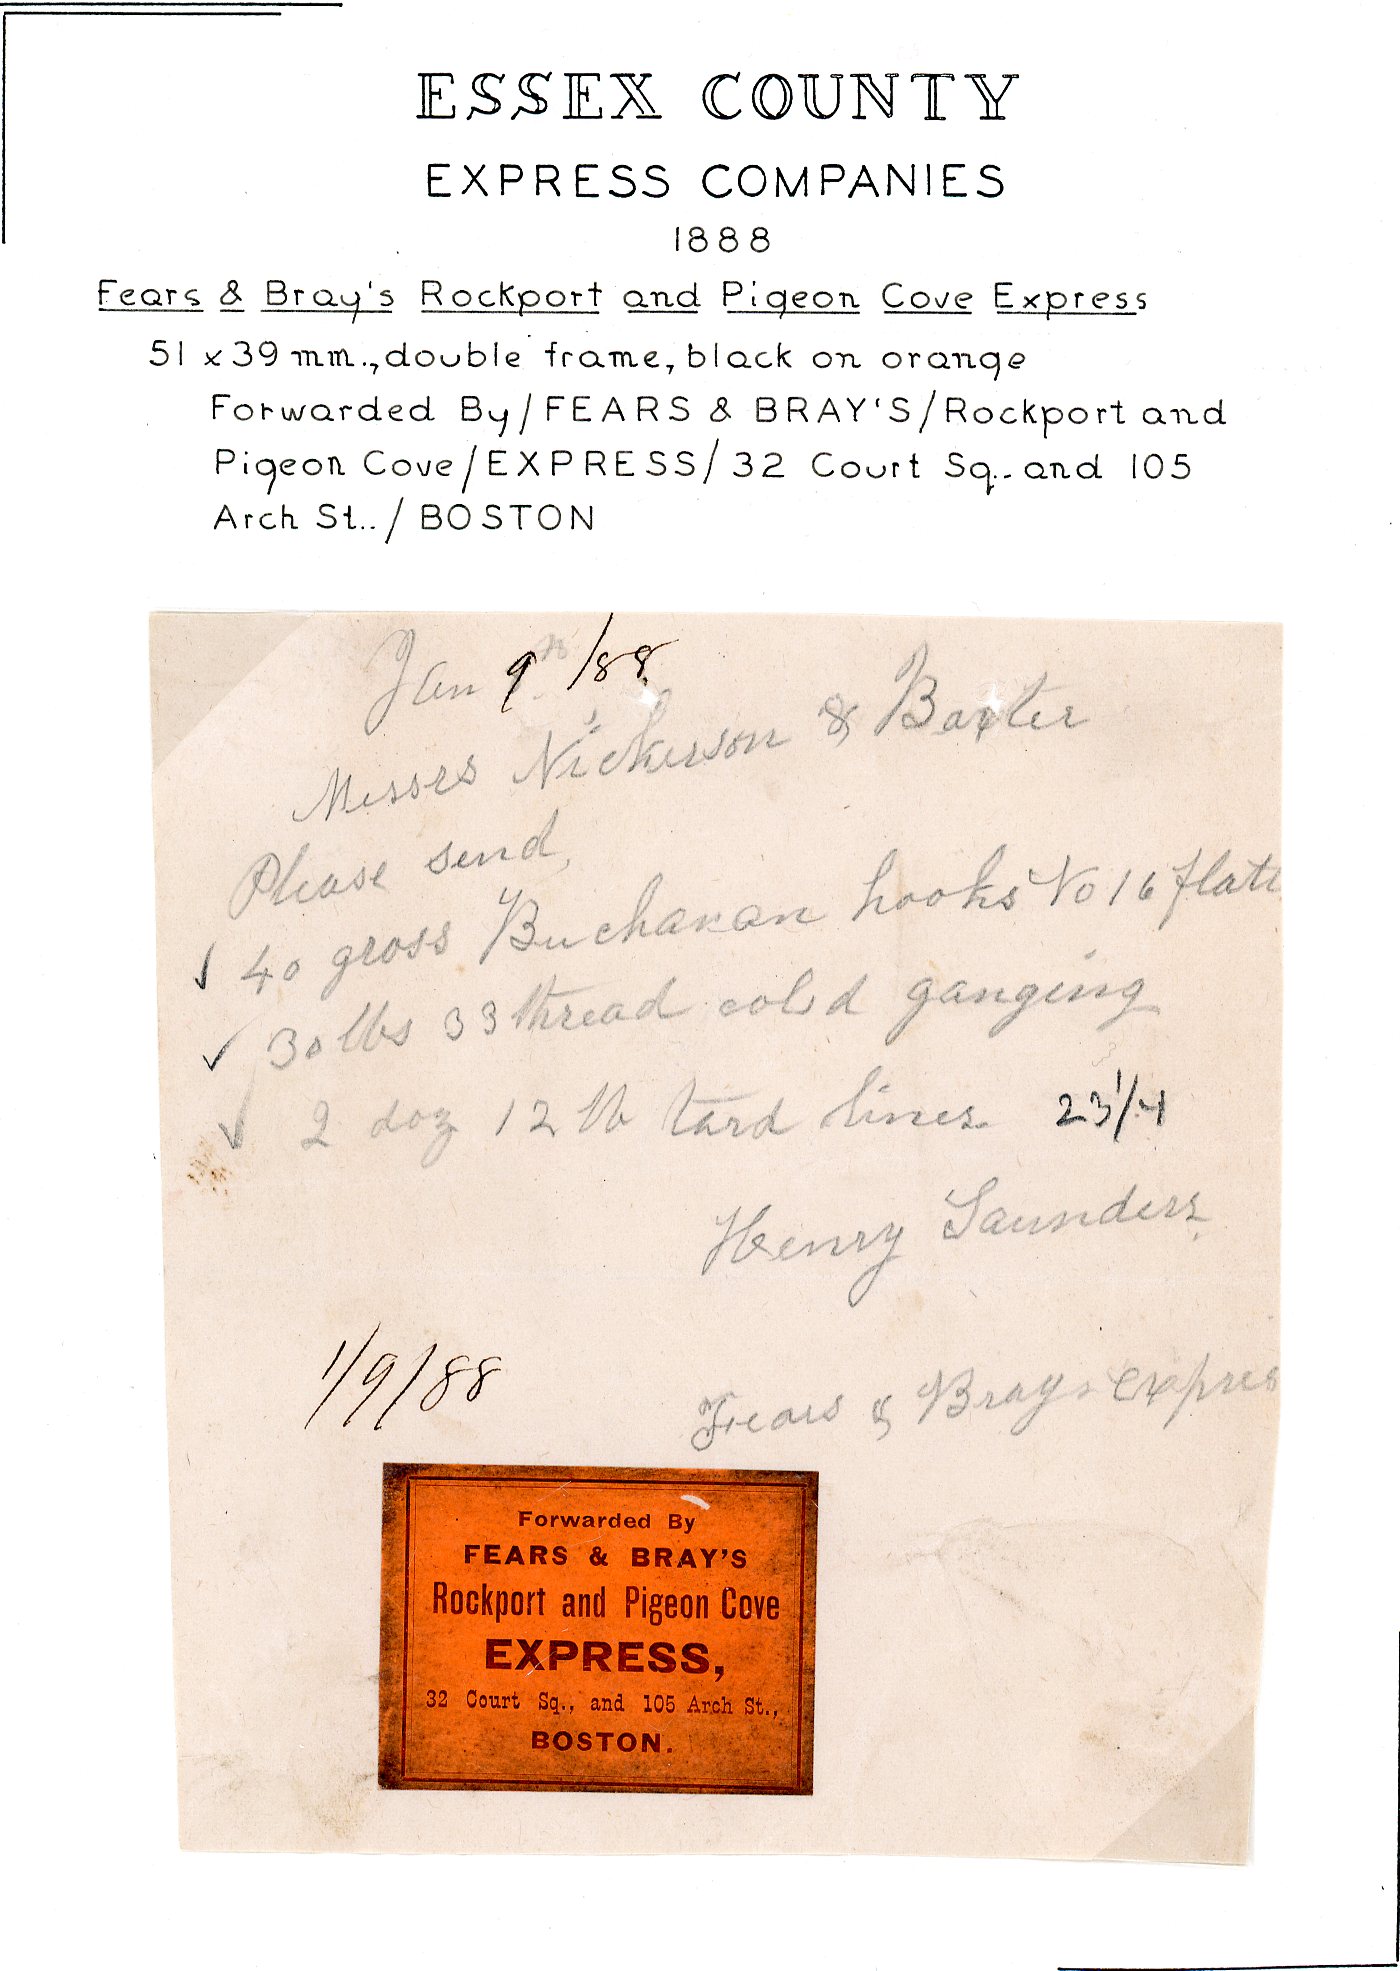 ESSEX COUNTY
EXPRESS COMPANIES
1888
Fears & Bray's Rockport and Pigeon Cove Express
51 x 39 mm., double frame, black on orange
Forwarded By/FEARS & BRAY'S/Rockport and
Pigeon Cove/EXPRESS/32 Court Sq. and 105
Arch St../BOSTON
Jan 9th /88
Messrs Nickerson & Baxter
Please send,
✓ 40 gross Buchanan hooks No 16 flatt
✓ 30 lbs 33 thread cold ganging
✓ 2 doz 12 lb tard lines 23 1/4
Henry Saunders
1/9/88
Fears & Brays expres
Forwarded By
FEARS & BRAY'S
Rockport and Pigeon Cove
EXPRESS,
32 Court Sq., and 105 Arch St.,
BOSTON.